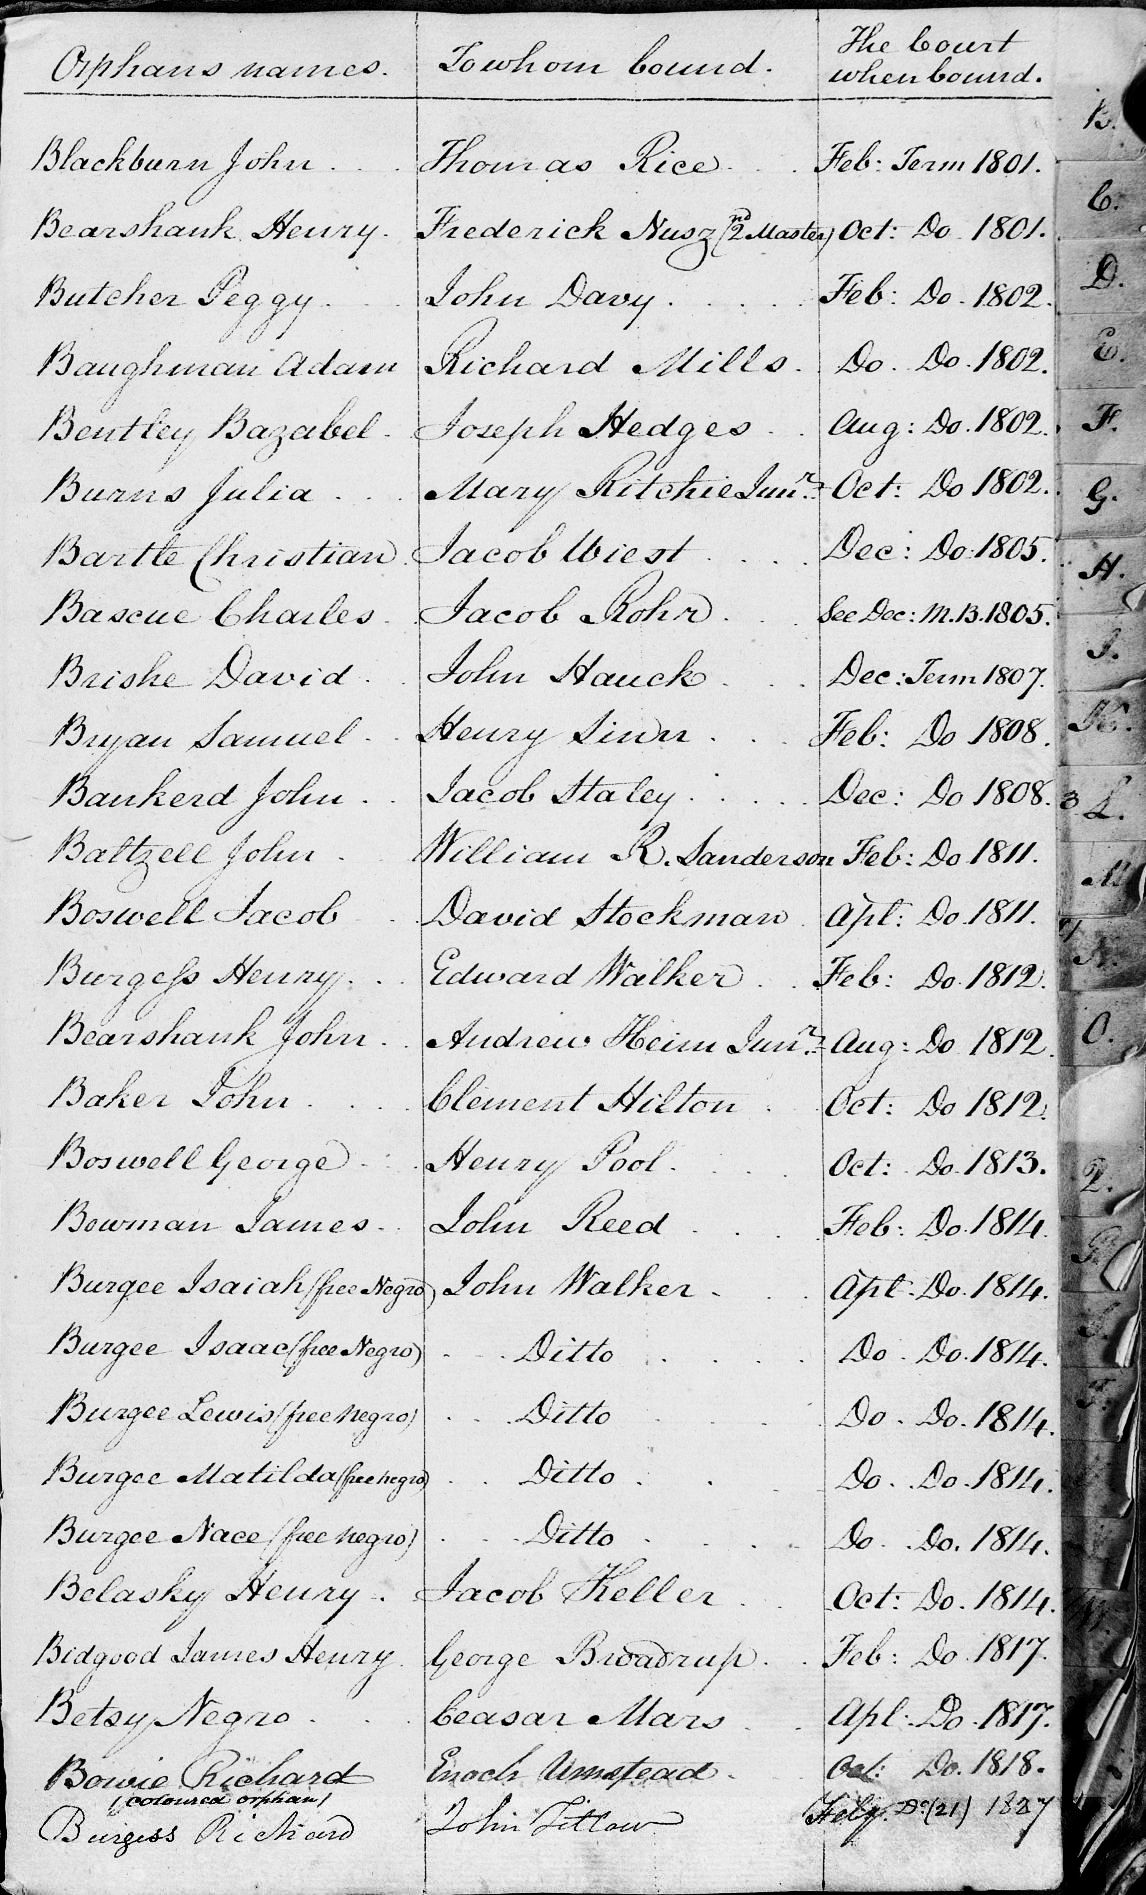 Orphans names. To whom bound. The Court when bound.
Blackburn John . . Thomas Rice . . Feb: Term 1801.
Bearshank Henry. Frederick Nusz (2nd Master) Oct: Do 1801.
Butcher Peggy . . John Davy . . . . Feb: Do. 1802.
Baughman Adam Richard Mills. Do. Do. 1802.
Bentley Bazabel. Joseph Hedges . . Aug: Do. 1802.
Burns Julia . . . Mary Ritchie Junr. Oct: Do 1802.
Bartle Christian. Jacob Wiest . . . . Dec: Do. 1805.
Bascue Charles. Jacob Rohr . . . See Dec: M.B. 1805.
Brishe David . . John Hauck . . . Dec: Term 1807.
Bryan Samuel . . Henry Sinn . . . Feb: Do 1808.
Bankerd John . . Jacob Staley . . . . Dec: Do 1808.
Baltzell John . . William R. Sanderson Feb: Do 1811.
Boswell Jacob . David Stockman . Apl: Do. 1811.
Burgess Henry . . Edward Walker . . Feb: Do. 1812.
Bearshank John . . Andrew Heim Junr. Aug: Do 1812.
Baker John . . . . Clement Hilton . . Oct: Do 1812.
Boswell George . . . Henry Pool . . . Oct: Do. 1813.
Bowman James . . John Reed . . . . Feb: Do. 1814.
Burgee Isaiah (free Negro) John Walker . . Apl. Do. 1814.
Burgee Isaac (free Negro) . . Ditto . . . . Do. Do. 1814.
Burgee Lewis (free negro) . . Ditto . . . Do. Do. 1814.
Burgee Matilda (free negro) . . Ditto . . . Do. Do. 1814.
Burgee Nace (free negro) . . Ditto . . . . Do. Do. 1814.
Belasky Henry . Jacob Keller . . Oct: Do. 1814.
Bidgood James Henry. George Broadrup . . Feb: Do 1817.
Betsy Negro . . . Ceasar Mars . . Apl. Do. 1817.
Bowie Richard Enoch Umstead . Oct: Do. 1818.
(coloured orphan)
Burgess Richard John Titlow Feby. Do. (21) 1827
B.
C.
D.
E.
F.
G.
H.
I.
K.
L.
M.
N.
O.